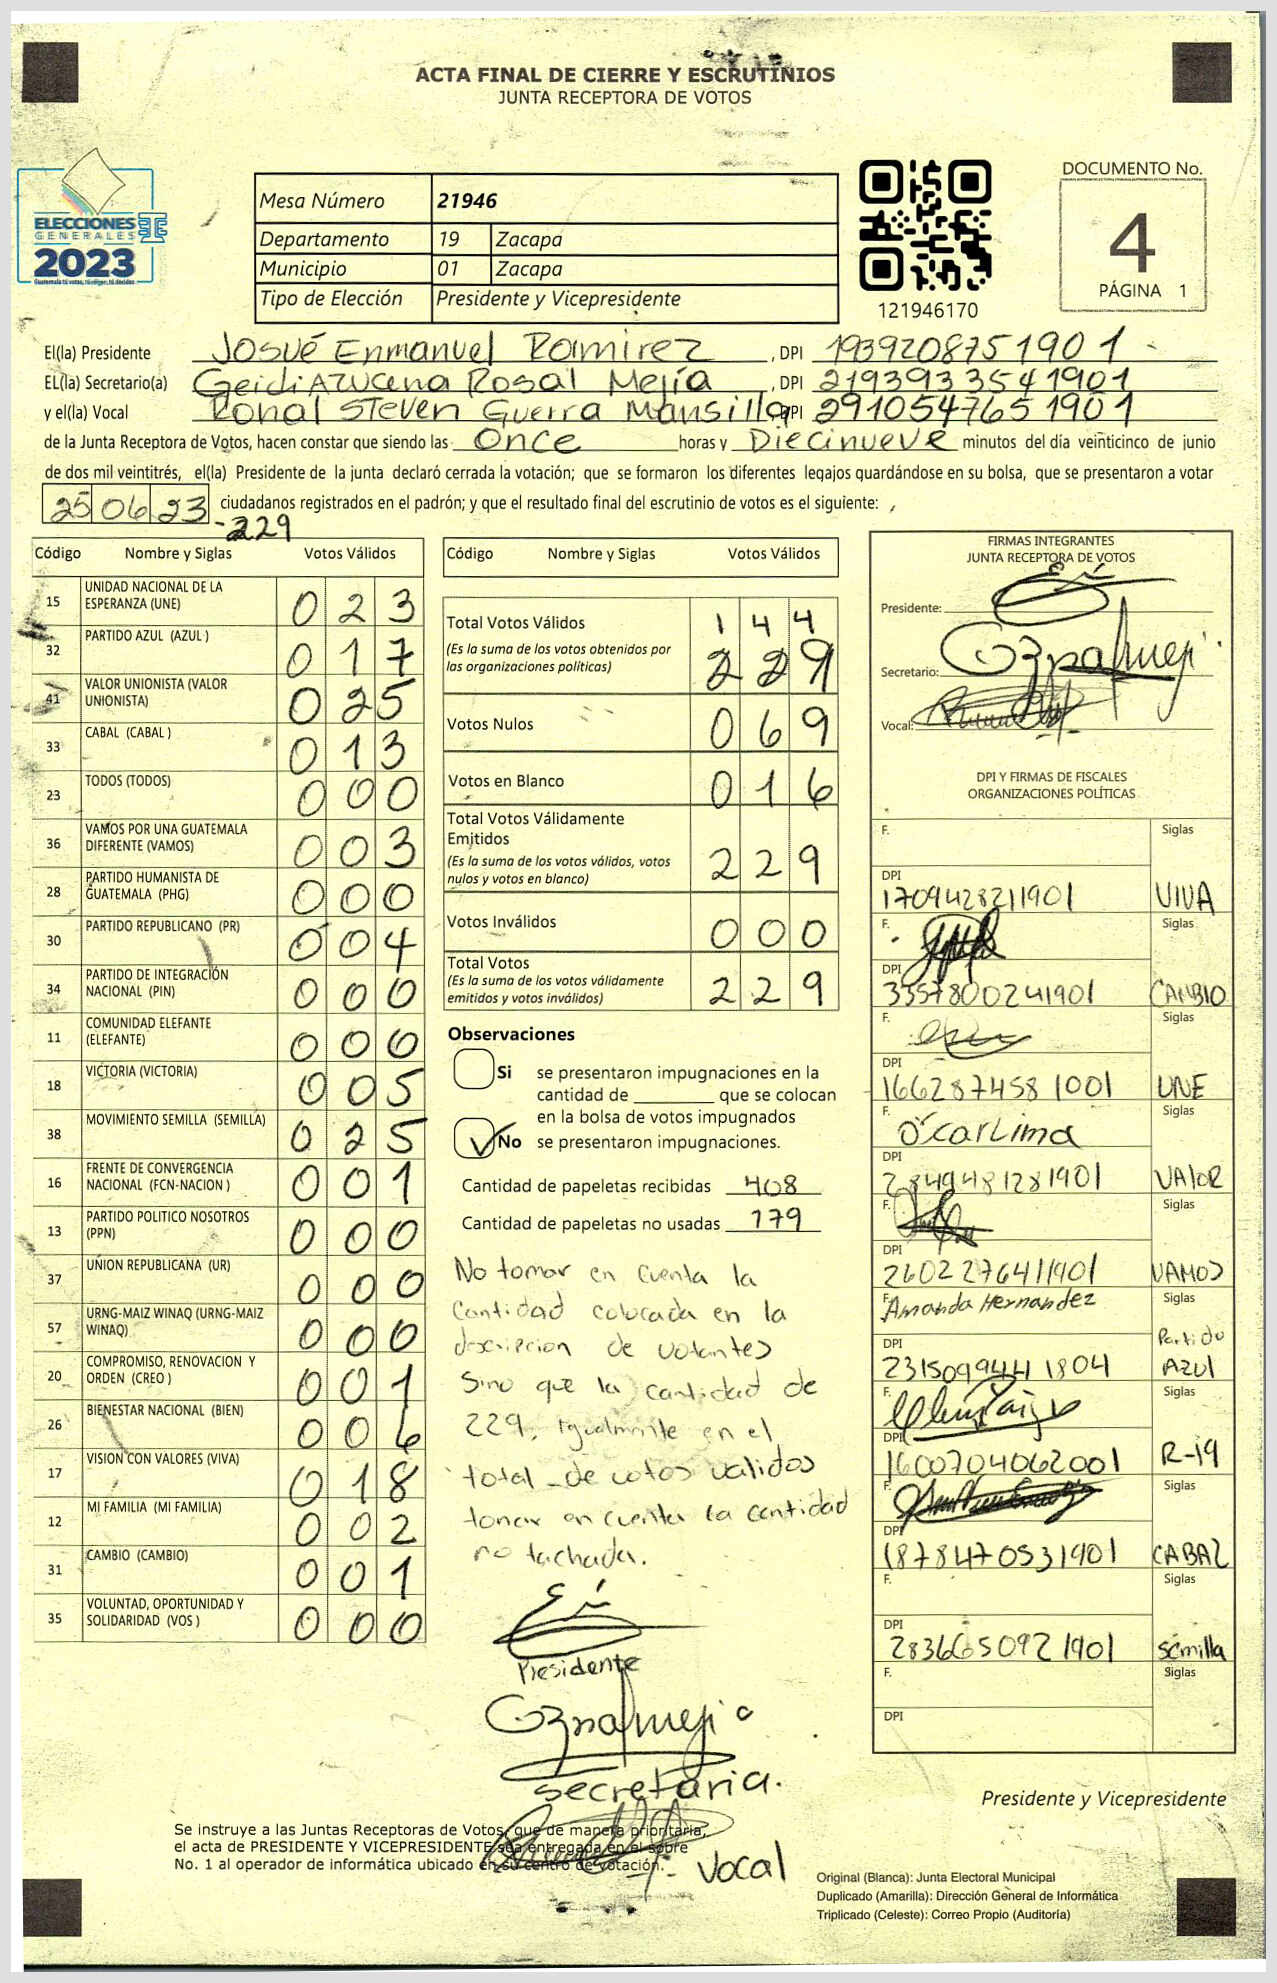 ACTA FINAL DE CIERRE Y ESCRUTINIOS
JUNTA RECEPTORA DE VOTOS
ELECCIONES
GENERALES
2023
Mesa Número 21946
Departamento 19 Zacapa
Municipio 01 Zacapa
Tipo de Elección Presidente y Vicepresidente
121946170
DOCUMENTO No.
4
PÁGINA 1
El(la) Presidente Josué Enmanuel Ramirez , DPI 1939208751901
EL(la) Secretario(a) Geidi Azucena Rosal Mejía , DPI 2193933541901
y el(la) Vocal Ronal Steven Guerra Mansilla DPI 2910547651901
de la Junta Receptora de Votos, hacen constar que siendo las Once horas y Diecinueve minutos del día veinticinco de junio
de dos mil veintitrés, el(la) Presidente de la junta declaró cerrada la votación; que se formaron los diferentes legajos guardándose en su bolsa, que se presentaron a votar
25 06 23 ciudadanos registrados en el padrón; y que el resultado final del escrutinio de votos es el siguiente:
-229
Código Nombre y Siglas Votos Válidos
15 UNIDAD NACIONAL DE LA ESPERANZA (UNE) 0 2 3
32 PARTIDO AZUL (AZUL ) 0 1 7
41 VALOR UNIONISTA (VALOR UNIONISTA) 0 2 5
33 CABAL (CABAL ) 0 1 3
23 TODOS (TODOS) 0 0 0
36 VAMOS POR UNA GUATEMALA DIFERENTE (VAMOS) 0 0 3
28 PARTIDO HUMANISTA DE GUATEMALA (PHG) 0 0 0
30 PARTIDO REPUBLICANO (PR) 0 0 4
34 PARTIDO DE INTEGRACIÓN NACIONAL (PIN) 0 0 0
11 COMUNIDAD ELEFANTE (ELEFANTE) 0 0 0
18 VICTORIA (VICTORIA) 0 0 5
38 MOVIMIENTO SEMILLA (SEMILLA) 0 2 5
16 FRENTE DE CONVERGENCIA NACIONAL (FCN-NACION ) 0 0 1
13 PARTIDO POLITICO NOSOTROS (PPN) 0 0 0
37 UNION REPUBLICANA (UR) 0 0 0
57 URNG-MAIZ WINAQ (URNG-MAIZ WINAQ) 0 0 0
20 COMPROMISO, RENOVACION Y ORDEN (CREO ) 0 0 1
26 BIENESTAR NACIONAL (BIEN) 0 0 6
17 VISION CON VALORES (VIVA) 0 1 8
12 MI FAMILIA (MI FAMILIA) 0 0 2
31 CAMBIO (CAMBIO) 0 0 1
35 VOLUNTAD, OPORTUNIDAD Y SOLIDARIDAD (VOS ) 0 0 0
Código Nombre y Siglas Votos Válidos
Total Votos Válidos 1 4 4
(Es la suma de los votos obtenidos por las organizaciones políticas) 2 2 9
Votos Nulos 0 6 9
Votos en Blanco 0 1 6
Total Votos Válidamente Emitidos
(Es la suma de los votos válidos, votos nulos y votos en blanco) 2 2 9
Votos Inválidos 0 0 0
Total Votos
(Es la suma de los votos válidamente emitidos y votos inválidos) 2 2 9
Observaciones
Si se presentaron impugnaciones en la
cantidad de ________ que se colocan
en la bolsa de votos impugnados
No se presentaron impugnaciones.
Cantidad de papeletas recibidas 408
Cantidad de papeletas no usadas 179
No tomar en cuenta la
Cantidad colocada en la
descripcion de votantes
Sino que la cantidad de
229, igualmente en el
total de votos validos
tomar en cuenta la cantidad
no tachada.
Presidente
secretaria.
Vocal
FIRMAS INTEGRANTES
JUNTA RECEPTORA DE VOTOS
Presidente:
Secretario:
Vocal:
DPI Y FIRMAS DE FISCALES
ORGANIZACIONES POLÍTICAS
F. Siglas
DPI
1709428211901 VIVA
F. Siglas
DPI
3357800241901 CAMBIO
F. Siglas
DPI
1662874581001 UNE
F. Siglas
Oscar Lima
DPI
2849481281901 VALOR
F. Siglas
DPI
2602276411901 VAMOS
F. Siglas
Amanda Hernandez
DPI Partido
2315099441804 AZUl
F. Siglas
DPI
1600704062001 R-19
F. Siglas
DPI
1878470531901 CABAL
F. Siglas
DPI
2836650921901 semilla
F. Siglas
DPI
Presidente y Vicepresidente
Se instruye a las Juntas Receptoras de Votos, que de manera prioritaria,
el acta de PRESIDENTE Y VICEPRESIDENTE sea entregada en el sobre
No. 1 al operador de informática ubicado en su centro de votación.
Original (Blanca): Junta Electoral Municipal
Duplicado (Amarilla): Dirección General de Informática
Triplicado (Celeste): Correo Propio (Auditoría)